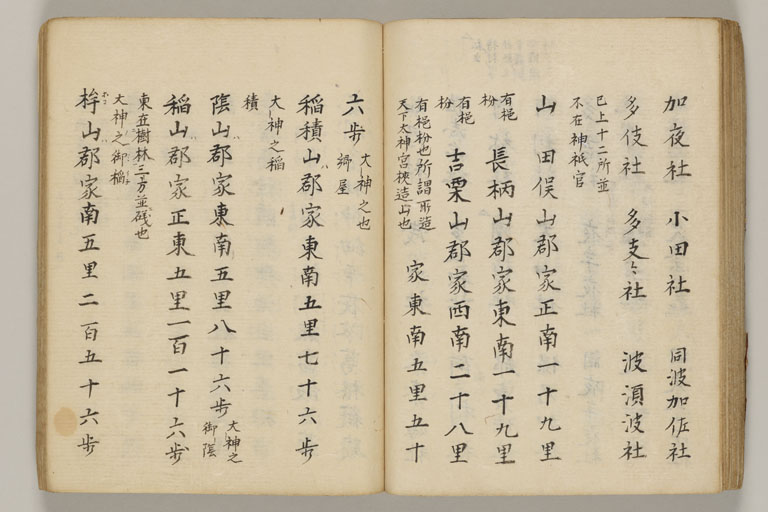 加夜社　小田社　同波加佐社
多伎社　多支々社　波湏波社
已上十二所並
不在神祇官
山田俣山郡家正南一十九里
有㮤
枌
長柄山郡家東南一十九里
有㮤
枌
吉栗山郡家西南二十八里
有㮤枌也所謂所造
天下大神宮材造山也
家東南五里五十
六歩
大神之也
御屋
稲積山郡家東南五里七十六歩
大神之稲
積
陰山郡家東南五里八十六歩
大神之
御陰
稲山郡家正東五里一百一十六歩
東在樹林三方並礒也
大神之御稲
桙山郡家南五里二百五十六歩